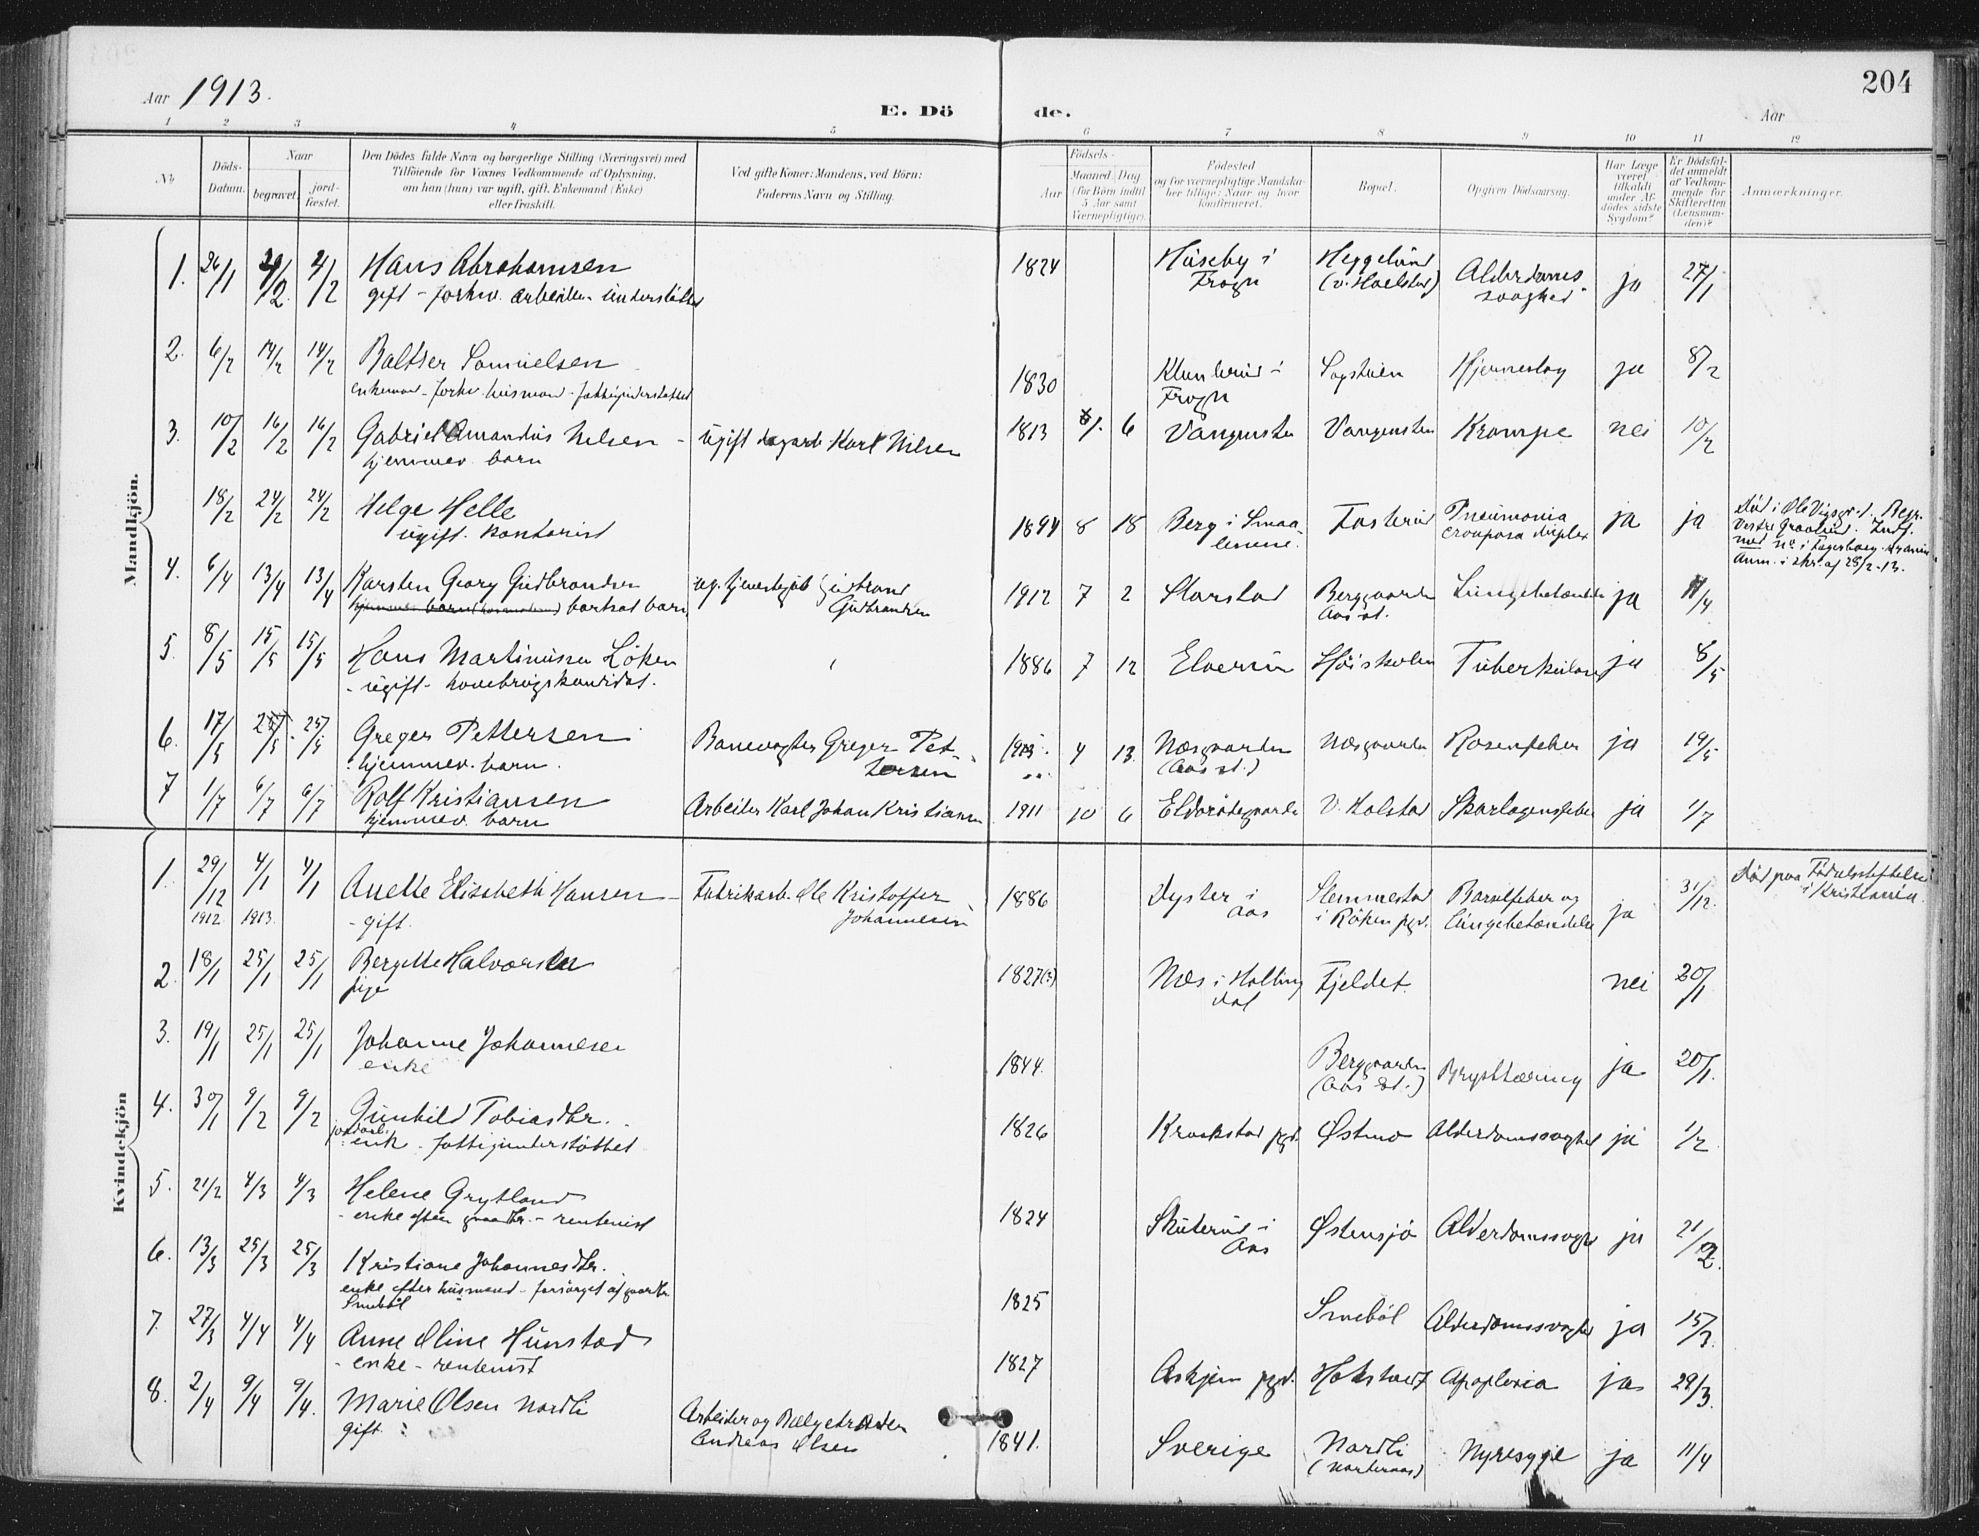 204
Aar 1913.
E. Dö de.
Aar
1 2 3 4 5 6 7 8 9 10 11 12
No
Döds-Datum.
Naar
begravet.
jord-fæstet.
Den Dödes fulde Navn og borgerlige Stilling (Næringsvei) med
Tilföiende for Voxnes Vedkommende af Oplysning,
om han (hun) var ugift, gift, Enkemand (Enke)
eller fraskilt.
Ved gifte Koner: Mandens, ved Börn:
Faderens Navn og Stilling.
Födsels-
Aar
Maaned
Dag
(for Börn indtil
5 Aar samt
Værnepligtige).
Födested
og for værnepligtige Mandska-
ber tillige: Naar og hvor
konfirmeret.
Bopæl.
Opgiven Dödsaarsag.
Har Læge
været
tilkaldt
under Af-
dödes sidste
Sygdom?
Er Dödsfal-
det anmeldt
af Vedkom-
mende for
Skifteretten
(Lensman-
den)?
Anmærkninger.
Mandkjön.
1. 26/1 2/2 Hans Abrahamsen 1824 Huseby i Heggelund Alderdoms ja 27/1
gift - forhv. arbeider understøttet Frogn svaghed
2. 6/2 14/2 14/2 Baltser Samuelsen 1830 Frogn Hjerneslag ja 8/2
enkemand - forhv. husmand - fattigunderstøttet
3. 10/2 16/2 16/2 Gabriel Amandus Nilsen - ugift dagarb. Karl Nilsen 1813 6 Vangensten Vangensten Krampe nei 10/2
hjemmev. barn
18/2 24/2 24/2 Helge Helle 1894 8 18 Berg i Smaa Pneumonia ja ja
ugift. kontorist lenene. crouposa duplex
Anm. i skr. af 28/2-13.
4. 6/4 13/4 13/4 Karsten Georg Gudbrandsen 1912 7 2 Berggaarden ja 11/4
bortsat barn Gudbrandsen Aas st.
5. 8/5 15/5 15/5 Hans Martinusen Löken 1886 7 12 Elverum Höiskolen Tuberkulose ja 8/5
- ugift - havebrugskandidat.
6. 17/5 25/5 Greger Pettersen Banevogter Greger Pet- 1913 4 13 Næsgaarden Næsgaarden Rosenfeber ja 19/5
hjemmev. barn. tersen (Aas st.)
7 1/7 6/7 6/7 Rolf Kristiansen Arbeider Karl Johan Kristiansen 1911 10 6 V. Holstad Skarlagensfeber ja 1/7
hjemmev. barn
Kvindekjön
1. 29/12 4/1 4/1 Anette Elisabeth Hansen - Fabrikarb. Ole Kristoffer 1886 Dyster i Slemmestad Barselfeber og ja 31/12. Död paa Födselsstiftelsen
1912 1913. - gift. Johannesen Aas i Röken pgd. Lungebetændelse i Kristiania.
2. 18/1 25/1 25/1 Bergitte Halvorsen 1827(?) Næs i Halling Fjeldet. nei 20/1
pige dal
3. 19/1 25/1 25/1 Johanne Johannesen 1844. Berggaarden Brysttæring ja 20/1.
enke (Aas st.)
4. 30/1 9/2 9/2 Gunhild Tobiasdtr. 1826 Kraakstad pgd. Østmo Alderdomssvaghed ja 1/2
enk. fattigunderstøttet
5. 21/2 4/3 4/3 Helene Grytland 1824 Skuterud i Østensjö Alderdomssvagh ja 21/2.
- enke efter - rentenist Aas
6. 13/3 25/3 25/3 Kristiane Johannesdtr. 1825 Smeböl Alderdomssvaghed ja 15/3.
enke efter husmand - forsörget af gaardbr.
Smeböl
7. 27/3 4/4 4/4 Anne Oline Hunstad 1827 Askjem pgd. Apoplexia ja 29/3.
- enke - rentenist
8. 2/4 9/4 9/4. Marie Olsen Nordli Arbeider og Bælgetræder 1841. Sverige Nordli Nyresyge ja 11/4
gift. Andreas Olsen (Norderaas)